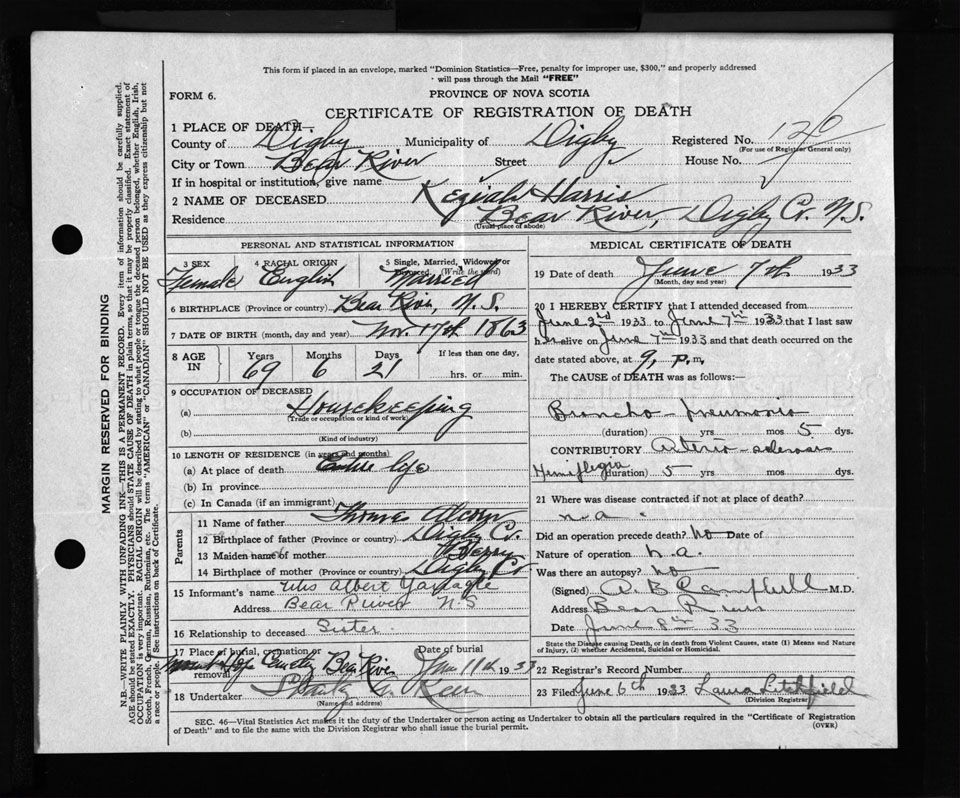 This form if placed in an envelope, marked "Dominion Statistics—Free, penalty for improper use, $300," and properly addressed
will pass through the Mail "FREE"
FORM 6.
PROVINCE OF NOVA SCOTIA
CERTIFICATE OF REGISTRATION OF DEATH
1 PLACE OF DEATH—
County of Digby Municipality of Digby Registered No.
(For use of Registrar General only)
City or Town Bear River Street House No.
If in hospital or institution, give name
2 NAME OF DECEASED Keziah Harris
Residence Bear River, Digby Co. N.S.
(Usual place of abode)
PERSONAL AND STATISTICAL INFORMATION
3 SEX 4 RACIAL ORIGIN 5 Single, Married, Widowed or Divorced. (Write the word)
Female English Married
6 BIRTHPLACE (Province or country) Bear River, N.S.
7 DATE OF BIRTH (month, day and year) Nov. 17th 1863
8 AGE IN Years Months Days If less than one day.
69 6 21 hrs. or min.
9 OCCUPATION OF DECEASED
(a) Housekeeping
(Trade or occupation or kind of work)
(b)
(Kind of industry)
10 LENGTH OF RESIDENCE (in years and months)
(a) At place of death Entire life
(b) In province
(c) In Canada (if an immigrant)
Parents
11 Name of father
12 Birthplace of father (Province or country) Digby Co.
13 Maiden name of mother Berry
14 Birthplace of mother (Province or country) Digby Co
15 Informant's name Mrs Albert
Address Bear River N.S
16 Relationship to deceased Sister
17 Place of burial, cremation or removal Date of burial
Mount Hope Cemetery Bear River June 11th 1933
18 Undertaker
(Name and address)
MEDICAL CERTIFICATE OF DEATH
19 Date of death June 7th 1933
(Month, day and year)
20 I HEREBY CERTIFY that I attended deceased from
June 2nd 1933 to June 7th 1933 that I last saw
her alive on June 7th 1933 and that death occurred on the
date stated above, at 9, p.m.
The CAUSE of DEATH was as follows:
Broncho-pneumonia
(duration) yrs mos 5 dys.
CONTRIBUTORY Arterio scleroses
Hemiplegia (duration) 5 yrs. mos. dys.
21 Where was disease contracted if not at place of death?
n.a.
Did an operation precede death? No Date of
Nature of operation n.a.
Was there an autopsy? no
(Signed) A. B. Campbell M.D.
Address Bear River
Date June 8th 33
State the Disease causing Death, or in death from Violent Causes, state (1) Means and Nature
of Injury, (2) whether Accidental, Suicidal or Homicidal.
22 Registrar's Record Number
23 Filed June 6th 1933 Laura Litchfield
(Division Registrar)
SEC. 46—Vital Statistics Act makes it the duty of the Undertaker or person acting as Undertaker to obtain all the particulars required in the "Certificate of Registration
of Death" and to file the same with the Division Registrar who shall issue the burial permit.
(OVER)
MARGIN RESERVED FOR BINDING
N.B.—WRITE PLAINLY WITH UNFADING INK—THIS IS A PERMANENT RECORD. Every item of information should be carefully supplied.
AGE should be stated EXACTLY. PHYSICIANS should STATE CAUSE OF DEATH in plain terms, so that it may be properly classified. Exact statement of
OCCUPATION is very important. RACIAL ORIGIN will be described by stating to what people or tongue the deceased person belonged, whether English, Irish,
Scotch, French, German, Russian, Ruthenian, etc. The terms "AMERICAN" or "CANADIAN" SHOULD NOT BE USED as they express citizenship but not
a race or people. See instructions on back of Certificate.